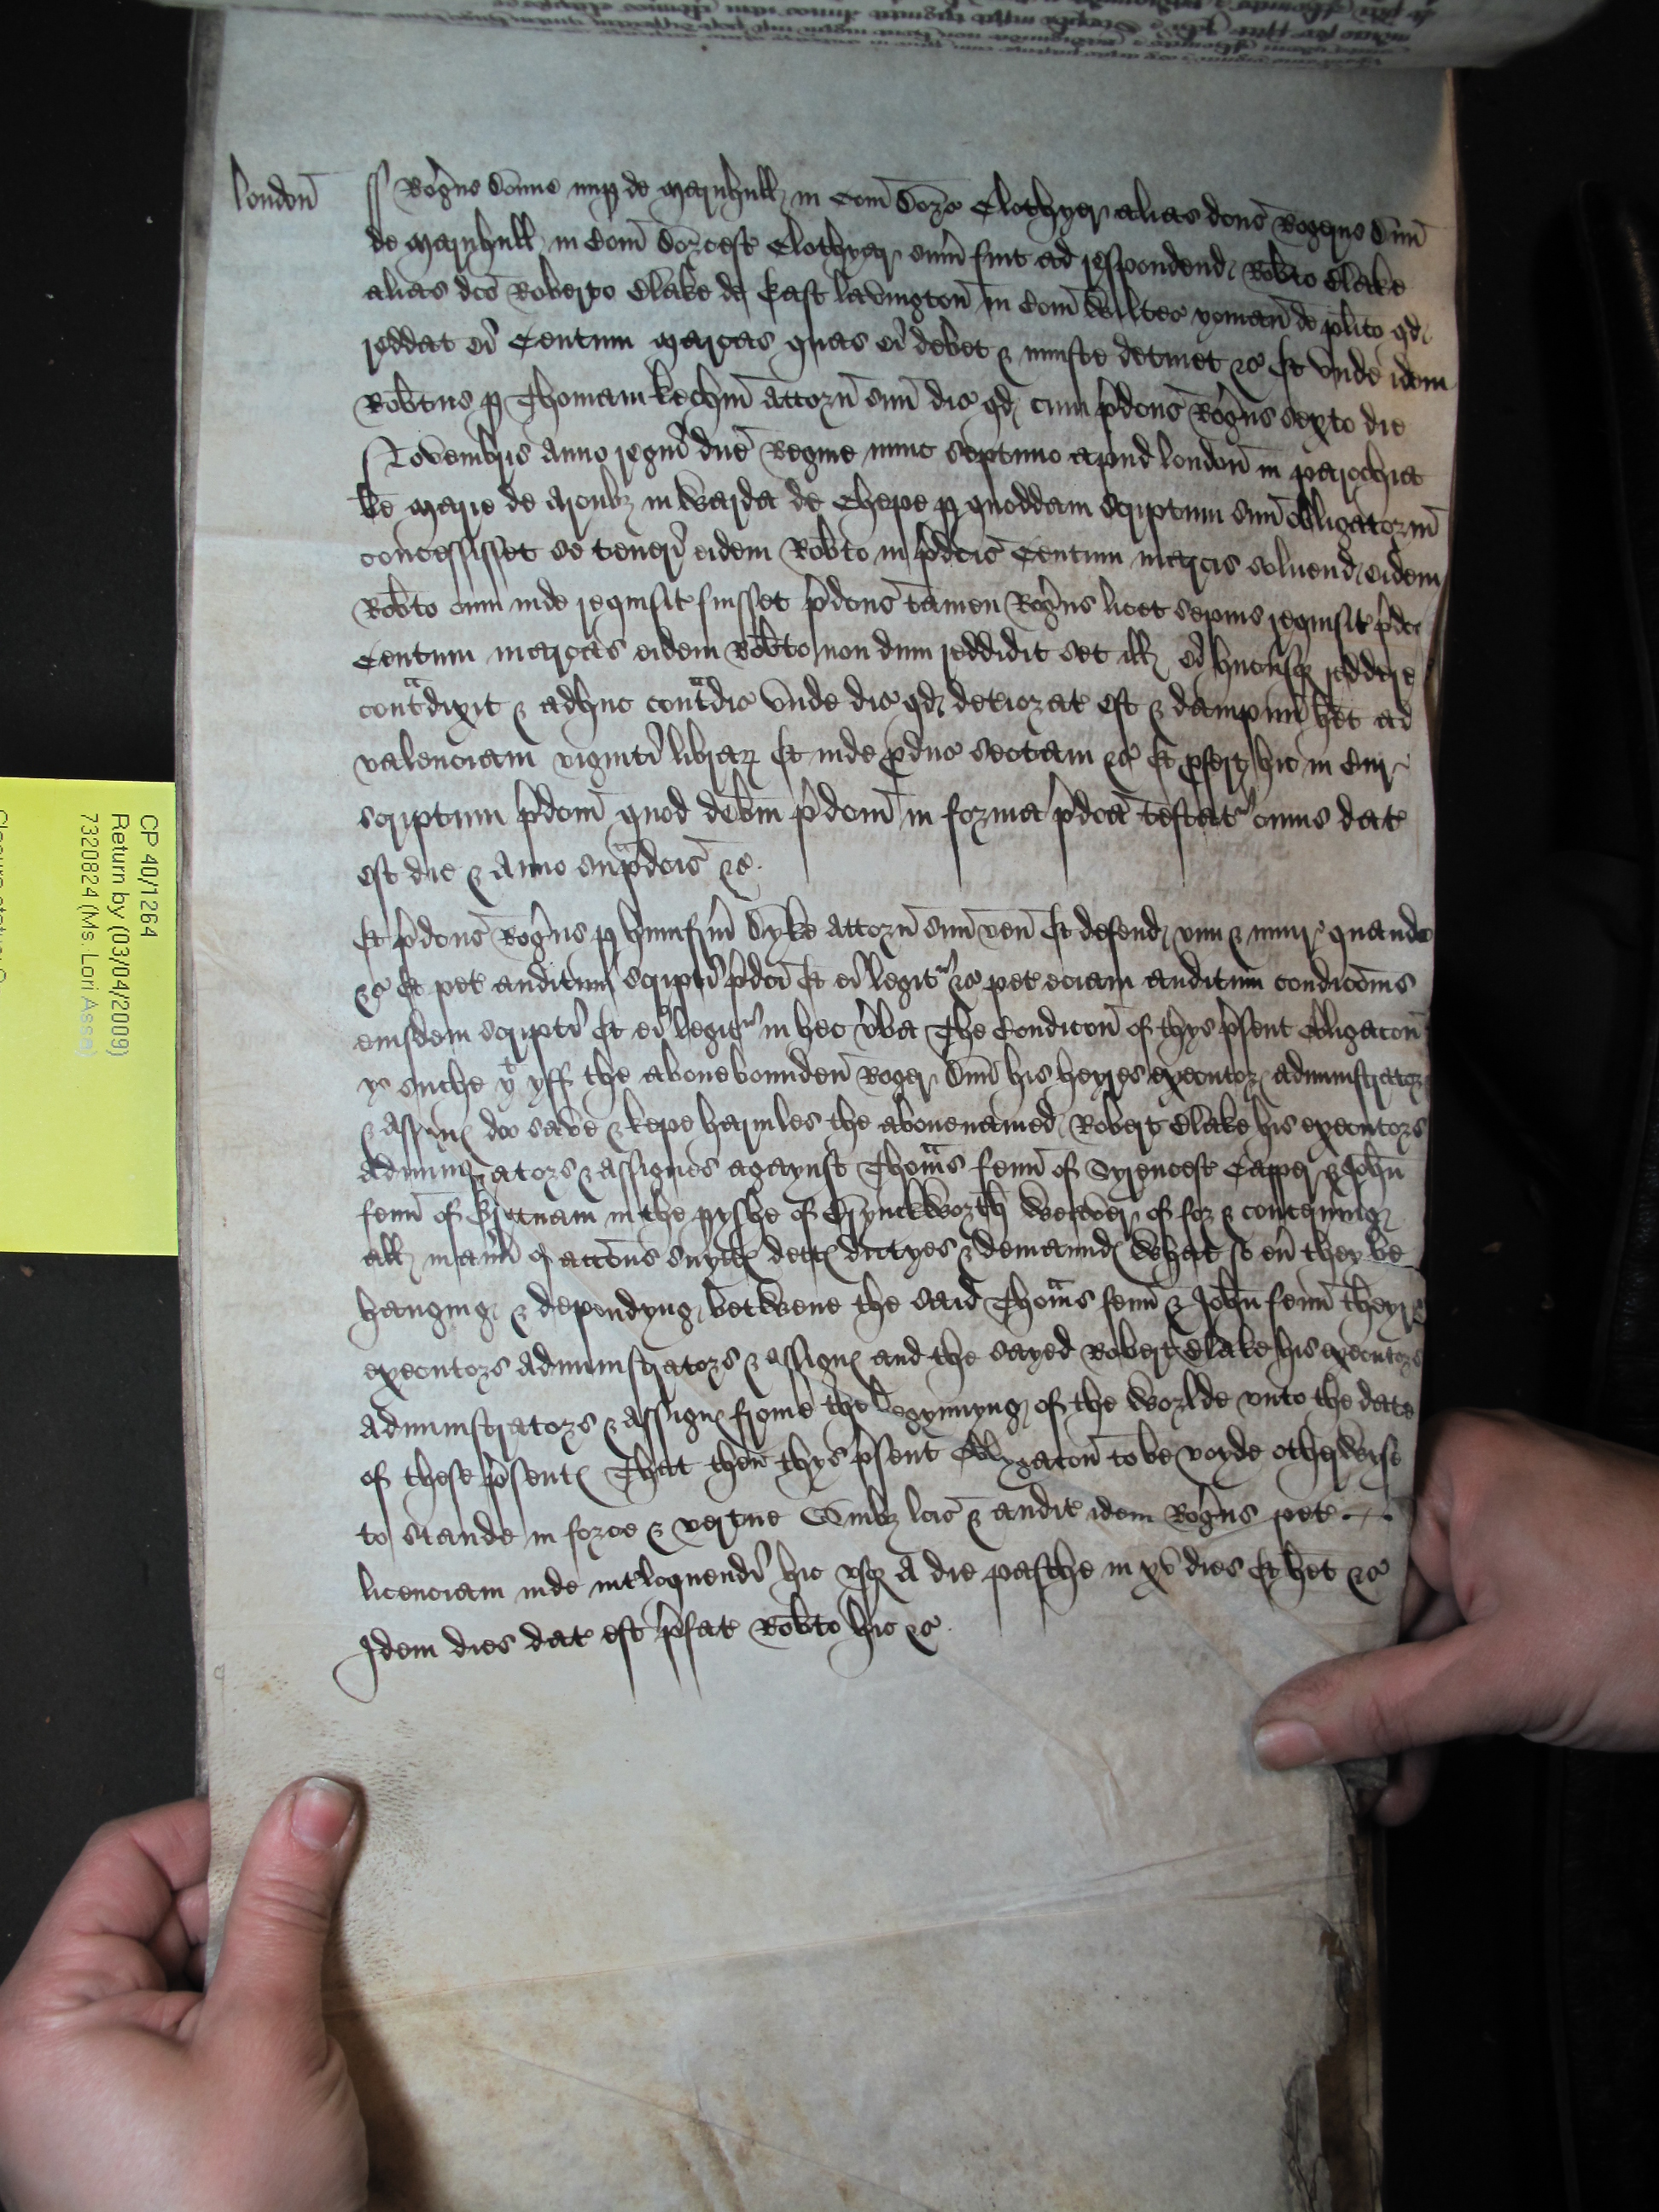 London ss Rogus Dunne nup de Marnhull in Com Dors Clothyer alias dcus Rogerus Dunn
de Marnhull in Com Dorcest Clothyer sum fuit ad respondend Robto Blake
alias dco Roberto Blake de East lavington in Com Wiltes yoman de plito qd
reddat ei Centum marcas quas ei debet & iniuste detinet &c Et unde idem
Robtus p Thomam kechyn Attorn suu dic qd cum pdcus Rogus sexto die
Novembris Anno regni dne Regine nunc septimo apud london in parochia
be marie de Arcubz in Warda de Chepe p quoddam scriptum suu obligatoriu
concessisset se teneri eidem Robto in pdcis Centum marcis solvend eidem
Robto cum inde requisit fuisset pdcus tamen Rogus licet sepius requisit pdcas
Centum marcas eidem Robto non dum reddidit set ill ei hucusq reddere
contadixit & adhuc contadic unde dic qd deteriorat est & dampnu het ad
valenciam viginti librar Et inde pduc sectam &c Et pfert hic in Cur
scriptum pdcm quod debm pdcm in forma pdca testat cuius dat
est die & Anno supadcis &c
Et pdcus Rogus p humfrm Dyke attorn suu ven Et defend vim & iniur quando
&c Et pet auditum scripti pdci Et ei legit &c pet eciam auditum condicois
eiusdem scripti Et ei legit in hec vba The Condicon of thys psent obligacon
ys suche yt yff the abovebounden Roger Dunn his heyres executors administrators
& assignes doo save & kepe harmles the abovenamed Robert Blake his executors
administrators & assignes agaynst Thomas fenn of Syrencest Capper & John
fenn of in the pyshe of weaver of for & concernyng
all maner of accons suytes dettes dutyes & demaundes what so evr they be
hanging & dependyng betwene the said Thomas fenn & John fenn theyr
executors administrators & assignes and the sayed Robert Blake his executors
administrators & assignes frome the begynnyng of the worlde unto the date
of these psentes That then thys psent Oblygacon to be voyde otherwyse
to stande in force & vertue Quibz lcis & audit idem Rogus pet
licenciam inde intloquendi hic usq A die pasche in xv dies Et het &c
Idem dies dat est pfat Robto hic &c
CP 40/1264
Return by (03/04/2009)
7320824 (Ms. Lori Assa)